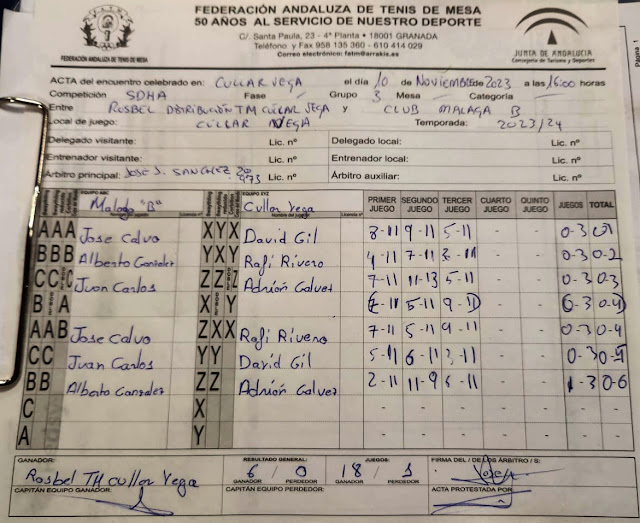 FEDERACIÓN ANDALUZA DE TENIS DE MESA
50 AÑOS AL SERVICIO DE NUESTRO DEPORTE
C/. Santa Paula, 23 - 4ª Planta • 18001 GRANADA
Teléfono y Fax 958 135 360 - 610 414 029
Correo electrónico: fatm@arrakis.es
FEDERACIÓN ANDALUZA DE TENIS DE MESA
JUNTA DE ANDALUCIA
Consejería de Turismo y Deportes
Página 1
ACTA del encuentro celebrado en: CULLAR VEGA el día 10 de Noviembre de 2023 a las 16:00 horas
Competición SDHA Fase Grupo 3 Mesa Categoría
Entre ROSBEL DISTRIBUCIÓN TM CÚLLAR VEGA y CLUB MALAGA B
Local de juego: CÚLLAR VEGA Temporada: 2023/24
Delegado visitante: Lic. nº Delegado local: Lic. nº
Entrenador visitante: Lic. nº Entrenador local: Lic. nº
Árbitro principal: JOSE J. SANCHEZ Lic. nº Árbitro auxiliar: Lic. nº
EQUIPO ABC Malaga "B" EQUIPO XYZ Cullar Vega PRIMER JUEGO SEGUNDO JUEGO TERCER JUEGO CUARTO JUEGO QUINTO JUEGO JUEGOS TOTAL
Nombre del jugador Licencia nº Nombre del jugador Licencia nº
A A A Jose Calvo X Y X David Gil 3-11 9-11 5-11 0-3
B B B Alberto Gonzalez Y X Y Rafi Rivero 4-11 7-11 0-3 0-2
C C C Juan Carlos Z Z Z Adrián Galvez 7-11 11-13 5-11 0-3 0-3
B A X Y 5-11 9-11 0-3 0-4
A A B Jose Calvo Z X X Rafi Rivero 7-11 5-11 9-11 0-3 0-4
C C Juan Carlos Y Y David Gil 5-11 6-11 0-3 0-5
B B Alberto Gonzalez Z Z Adrián Galvez 2-11 11-9 6-11 1-3 0-6
C X - - - - - - -
A Y - - - - - - -
GANADOR: RESULTADO GENERAL: JUEGOS: FIRMA DEL / DE LOS ÁRBITRO / S:
Rosbel TM Cullar Vega 6 / 0 18 / 1
GANADOR PERDEDOR GANADOR PERDEDOR
CAPITÁN EQUIPO GANADOR: CAPITÁN EQUIPO PERDEDOR: ACTA PROTESTADA POR: